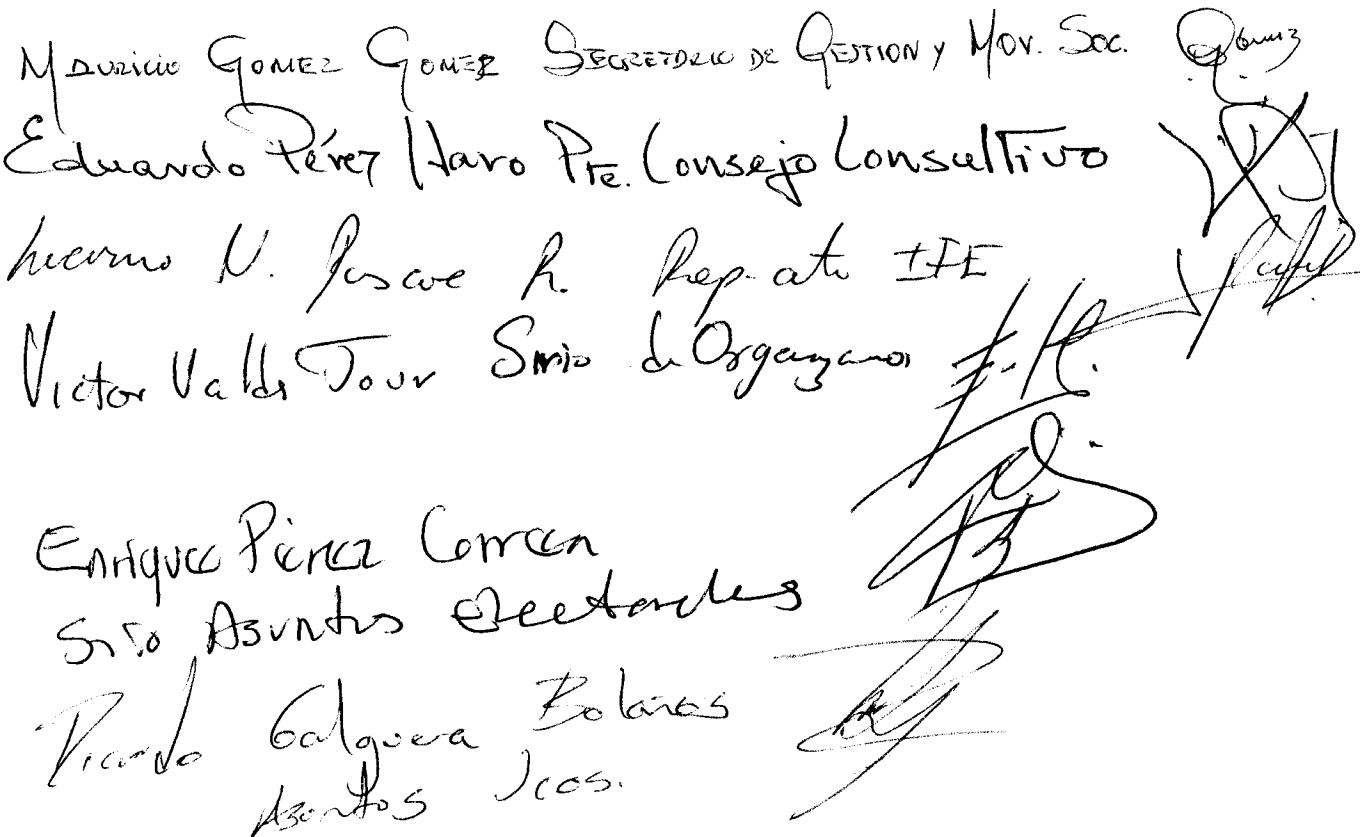 MAURICIO GOMEZ GOMEZ SECRETARIO DE GESTION y MOV. SOC. Gómez
Eduardo Pérez Haro Pte. Consejo Consultivo
N. Pascoe R. Rep. ante IFE
Victor Valds Tovr Srrio de
Enrique Pérez Correa
Srio Asuntos Electorales
Ricardo Galguera Bolaños
Asuntos Jcos.